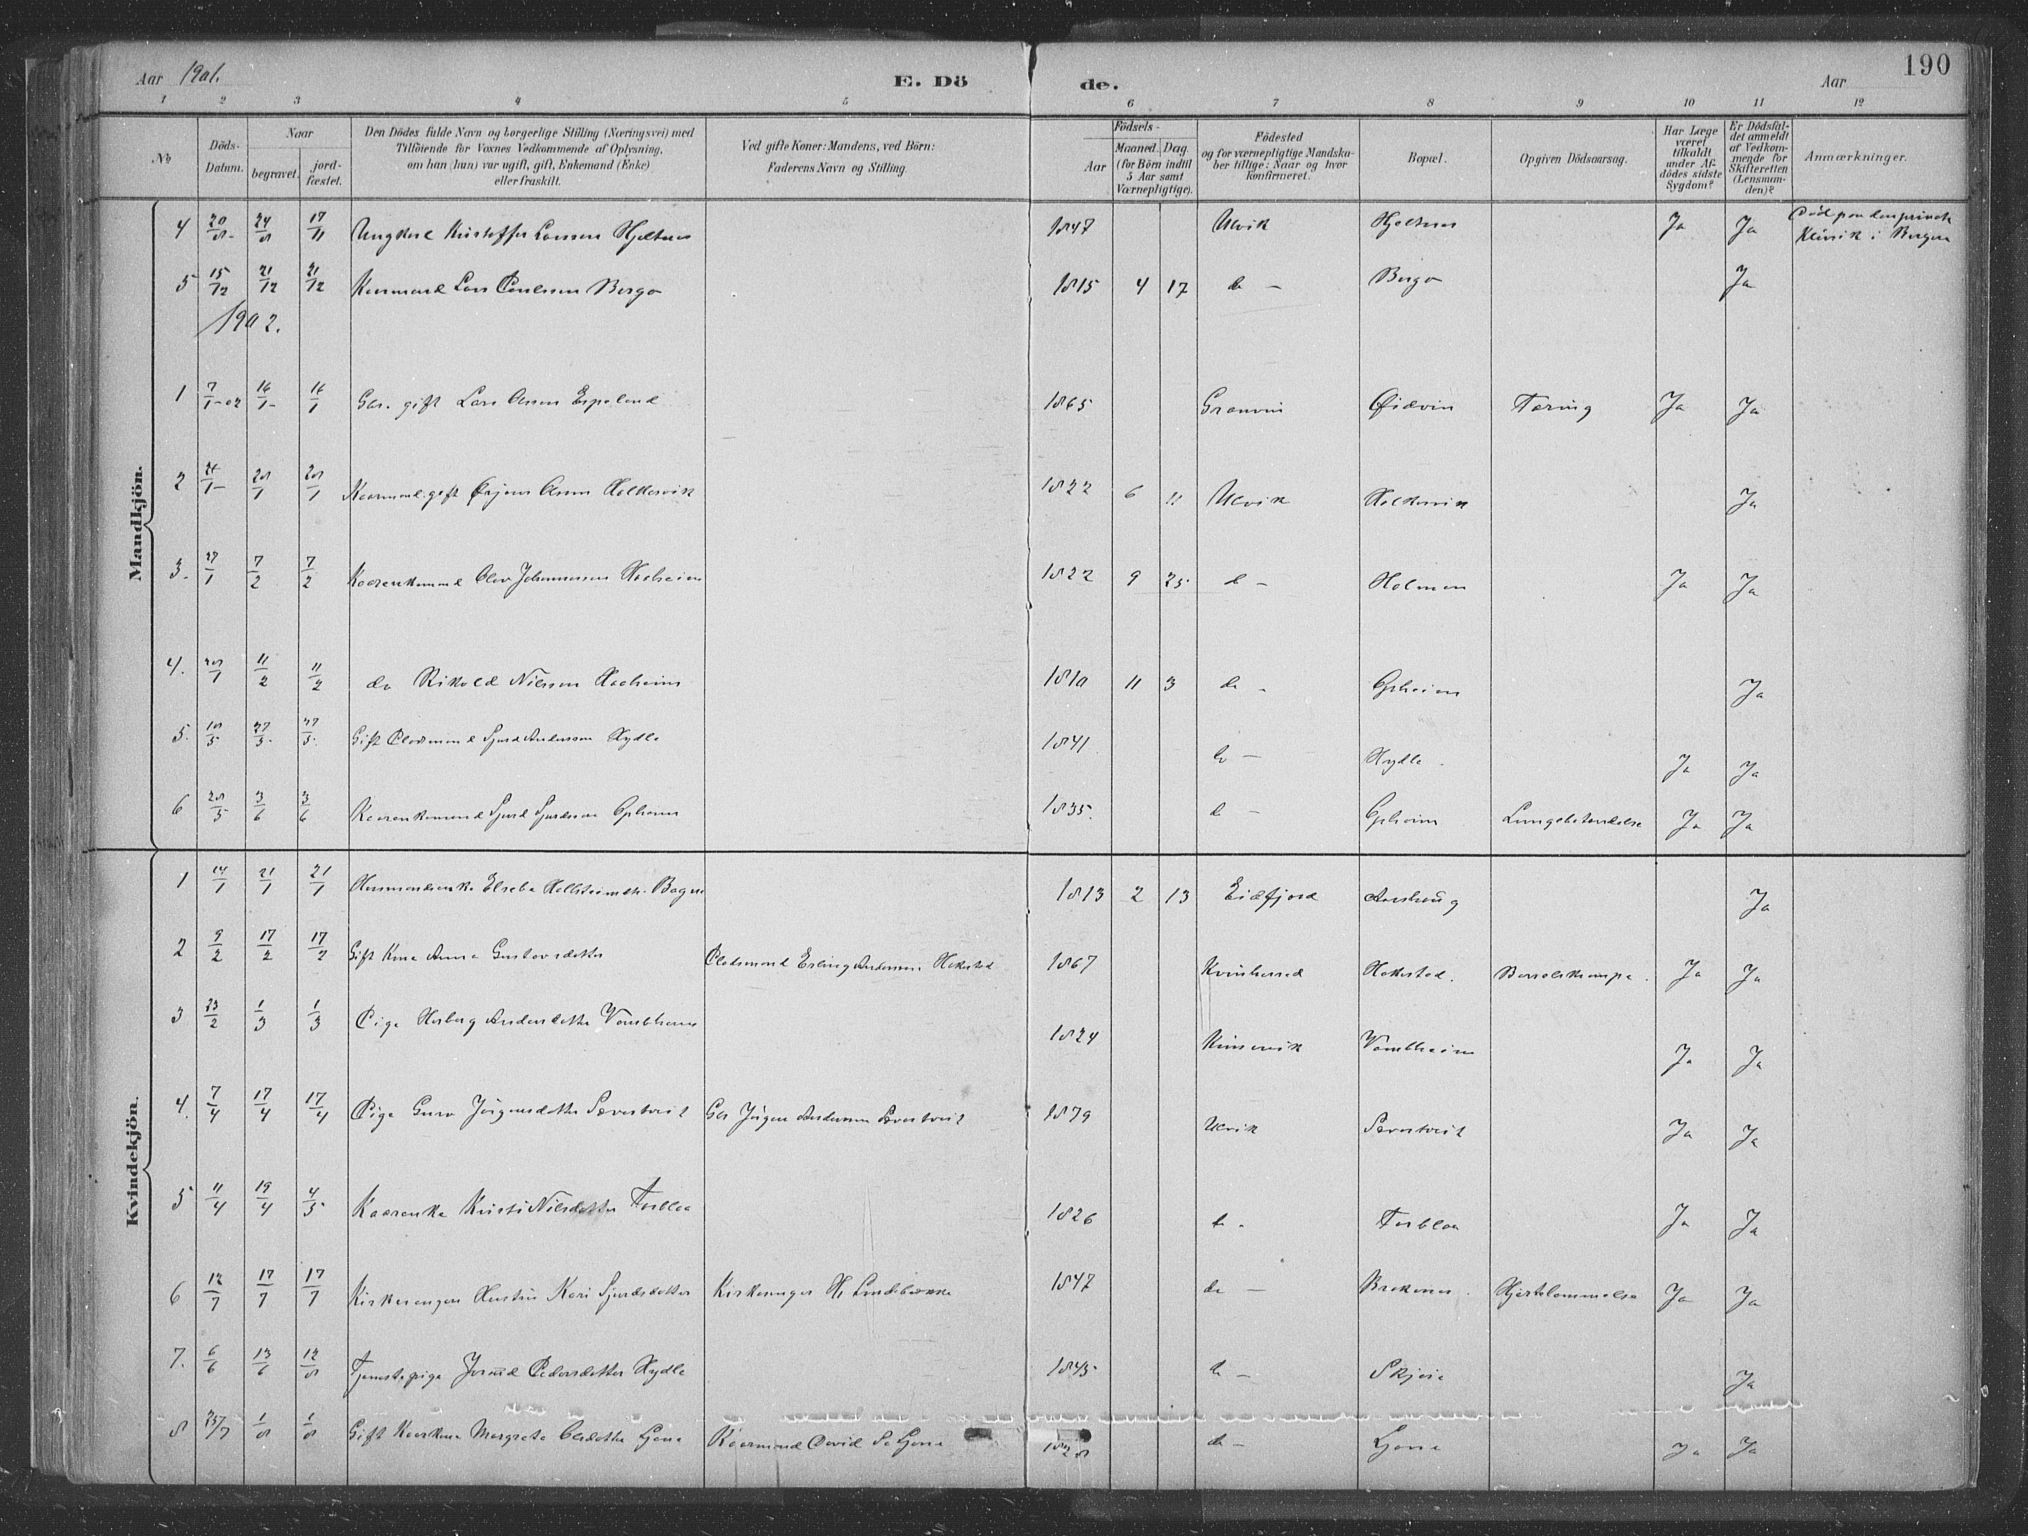 Aar 1901. E. Dö de. Aar 190
1 2 3 4 5 6 7 8 9 10 11 12
No
Döds-Datum.
Naar
begravet.
jord-fæstet.
Den Dödes fulde Navn og borgerlige Stilling (Næringsvei) med
Tilföiende for Voxnes Vedkommende af Oplysning,
om han (hun) var ugift, gift, Enkemand (Enke)
eller fraskilt.
Ved gifte Koner: Mandens, ved Börn:
Faderens Navn og Stilling.
Födsels-
Aar
Maaned. Dag.
(for Börn indtil
5 Aar samt
Værnepligtige).
Födested
og for værnepligtige Mandska-
ber tillige: Naar og hvor
konfirmeret.
Bopæl.
Opgiven Dödsaarsag.
Har Læge
været
tilkaldt
under Af-
dödes sidste
Sygdom?
Er Dödsfal-
det anmeldt
af Vedkom-
mende for
Skifteretten
(Lensman-
den)?
Anmærkninger.
Mandkjön.
4 20/8 24/8 17/11 Ungkarl Kristoffer Larsen Hjeltnes 1847 Ulvik Hjeltnes Ja Ja Död paa den private
Klinik i Bergen
5 15/12 21/12 21/12 Kaarmand Lars Paulsson Bergo 1815 4 17 do - Bergo Ja
1902.
1 7/1-02 16/1 16/1 Gbr. gift Lars Olsson Espeland 1865 Granvin Øidvin Tæring Ja Ja
2 21/1 28/1 28/1 Kaarmand gift Örjans Olsson Holkesvik 1822 6 11 Ulvik Holkesvik Ja
3. 27/1 7/2 7/2 Kaarenkemand Olav Johannessen Haaheim 1822 9 25 do - Holmen Ja Ja
4. 28/1 11/2 11/2 do Rikold Nilsson Haaheim 1810 11 3 do - Opheim Ja
5. 18/5 27/5 27/5 Gift Pladsmand Sjurd Andersson Hydle 1841 do - Hydle. Ja Ja
6 28/5 3/6 3/6 Kaarenkemand Sjurd Sjurdsson Opheim 1835. do - Opheim Lungebetændelse Ja Ja
Kvindekjön.
1 14/1 21/1 21/1 Husmandsenke Elseba Helleimsdtr. Bagn 1813 2 13 Eidfjord Aashaug Ja
2 9/2 17/2 17/2 Gift Kone Anna Gustavsdatter Pladsmand Erling Andersson Hakestad 1867 Kvinherred Hakestad. Barselskrampe. Ja Ja
3 23/2 1/3 1/3 Pige Herborg Andersdatter Vambheim 1824 Kinservik Vambheim Ja Ja
4. 7/4 17/4 17/4 Pige Guro Jörgensdatter Sævartveit Gbr Jörgen Andersson Sævartveit 1879 Ulvik Sævartveit Ja Ja
5 11/4 19/4 4/5 Kaarenke Kristi Nilsdatter Torblaa 1826 do - Torblaa Ja Ja
6 12/7 17/7 17/7 Kirkesangers Hustru Kari Sjurdsdatter Kirkesanger H. Lindebrække 1847 do - Brakenes. Hjertelammelse Ja Ja
7. 6/6 13/6 12/8 Tjenestepige Jorund Pedersdatter Hydle 1845 do - Skjeie Ja
8 25/7 1/8 1/8 Gift Kaarkone Margreta Olsdatter Ljone Kaarmand David S. Ljone 1828 do - Ljone Ja Ja